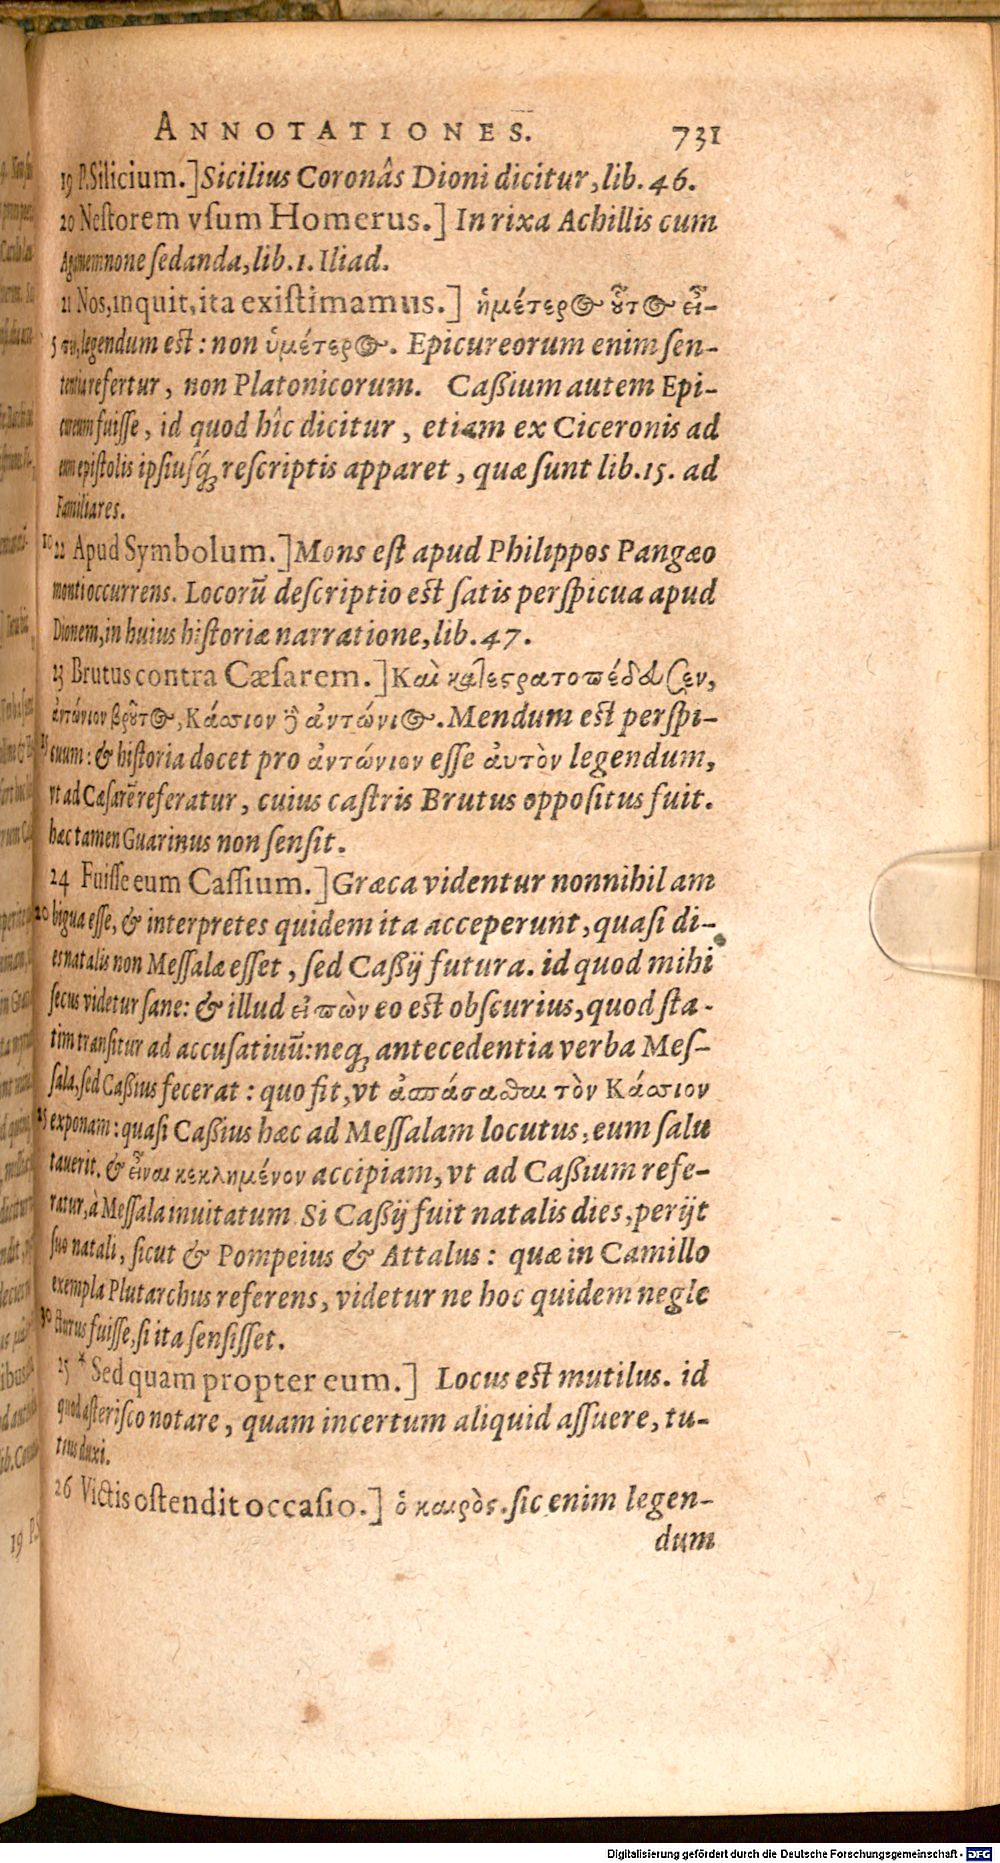 ANNOTATIONES. 731
19 P. Silicium.] Sicilius Coronâs Dioni dicitur, lib. 46.
20 Nestorem vsum Homerus.] In rixa Achillis cum
Agamemnone sedanda, lib. 1. Iliad.
21 Nos, inquit, ita existimamus.] ἡμέτερος οὗτος εἶ-
5 legendum est: non ὑμέτερος. Epicureorum enim sen-
tentia refertur, non Platonicorum. Caßium autem Epi-
cureum fuisse, id quod hîc dicitur, etiam ex Ciceronis ad
eum epistolis ipsiusq́; rescriptis apparet, quæ sunt lib. 15. ad
Familiares.
10 22 Apud Symbolum.] Mons est apud Philippos Pangæo
monti occurrens. Locorū descriptio est satis perspicua apud
Dionem, in huius historiæ narratione, lib. 47.
23 Brutus contra Cæsarem.] Καὶ κατεστρατοπέδευσεν,
ἀντώνιον βροῦτος, Κάσσιον δὲ ἀντώνιος. Mendum est perspi-
15 cuum: & historia docet pro ἀντώνιον esse αὐτὸν legendum,
vt ad Cæsarē referatur, cuius castris Brutus oppositus fuit.
hæc tamen Guarinus non sensit.
24 Fuisse eum Cassium.] Græca videntur nonnihil am
20 bigua esse, & interpretes quidem ita acceperunt, quasi di-
es natalis non Messalæ esset, sed Caßij futura. id quod mihi
secus videtur sane: & illud εἰπὼν eo est obscurius, quod sta-
tim transitur ad accusatiuū: neq; antecedentia verba Mes-
sala, sed Caßius fecerat: quo fit, vt ἀσπάσασθαι τὸν Κάσσιον
25 exponam: quasi Caßius hæc ad Messalam locutus, eum salu
tauerit. & εἶναι κεκλημένον accipiam, vt ad Caßium refe-
ratur, à Messala inuitatum. Si Caßij fuit natalis dies, perijt
suo natali, sicut & Pompeius & Attalus: quæ in Camillo
exempla Plutarchus referens, videtur ne hoc quidem negle
30 cturus fuisse, si ita sensisset.
25 * Sed quam propter eum.] Locus est mutilus. id
quod asterisco notare, quam incertum aliquid assuere, tu-
tius duxi.
26 Victis ostendit occasio.] ὁ καιρὸς. sic enim legen-
dum
19 P. S
Digitalisierung gefördert durch die Deutsche Forschungsgemeinschaft - DFG